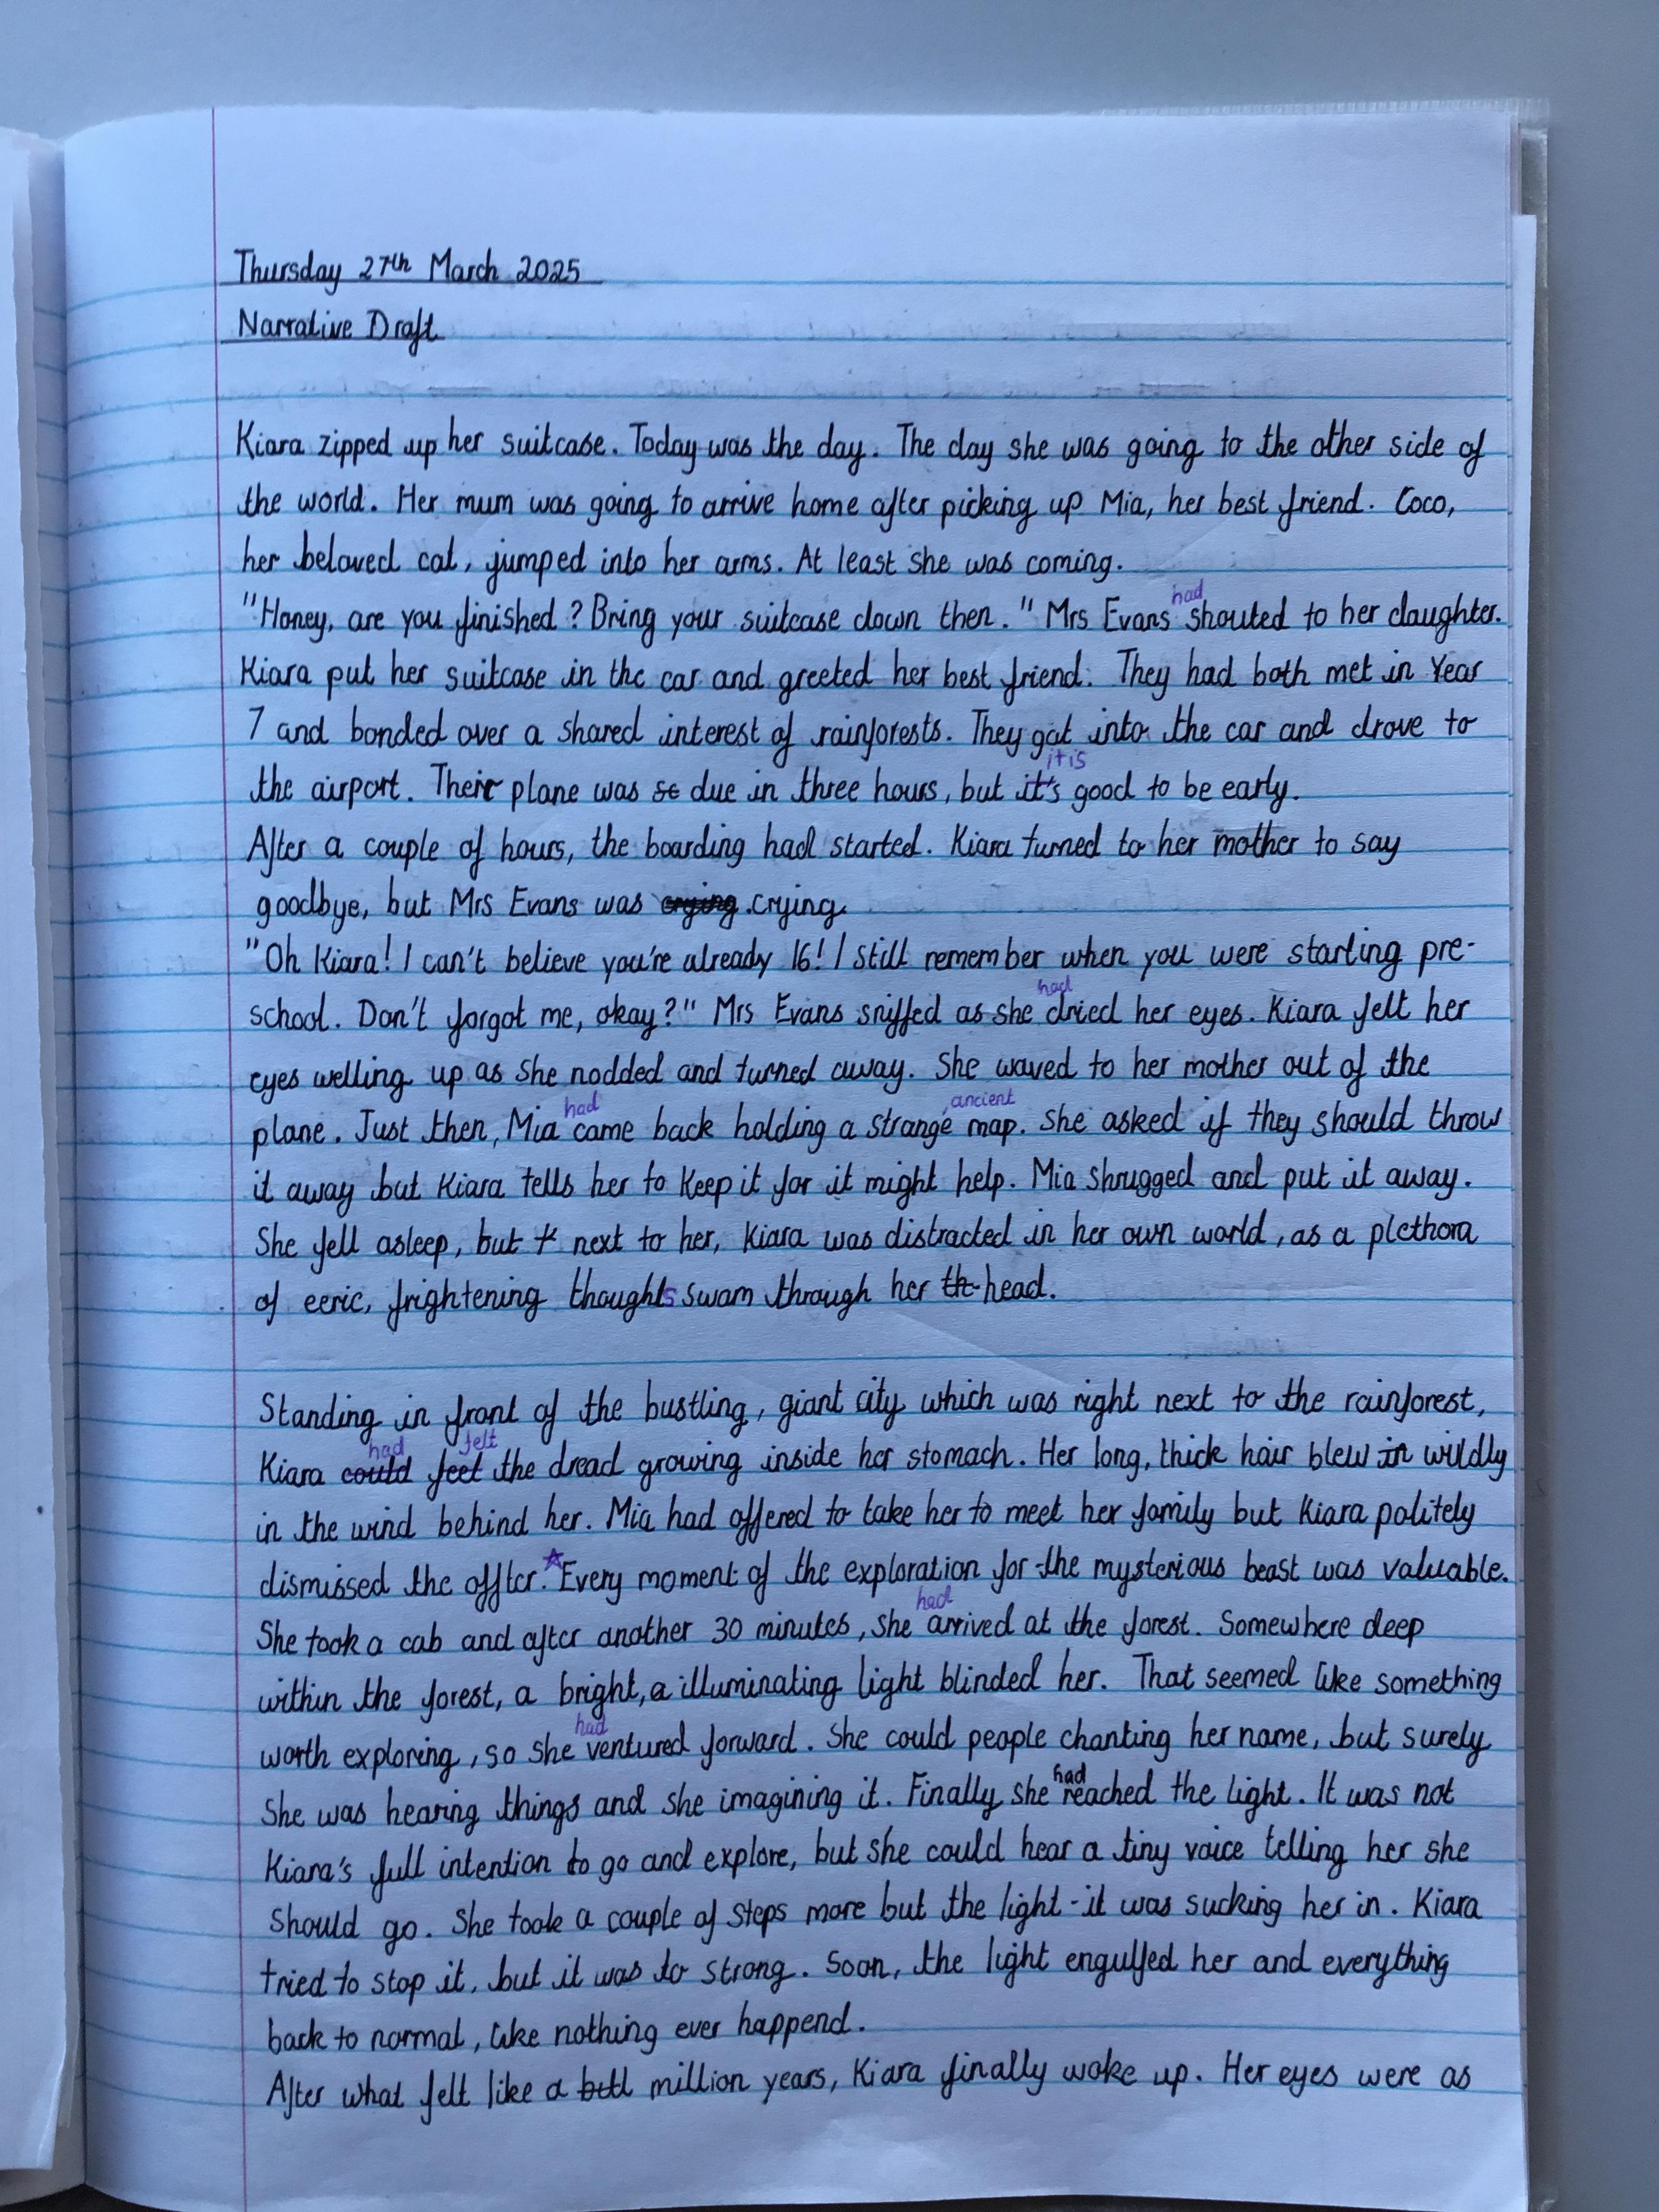 Thursday 27th March 2025
Narrative Draft
Kiara zipped up her suitcase. Today was the day. The day she was going to the other side of
the world. Her mum was going to arrive home after picking up Mia, her best friend. Coco,
her beloved cat, jumped into her arms. At least she was coming.
"Honey, are you finished? Bring your suitcase down then." Mrs Evans had shouted to her daughter.
Kiara put her suitcase in the car and greeted her best friend. They had both met in Year
7 and bonded over a shared interest of rainforests. They got into the car and drove to
the airport. Their plane was se due in three hours, but it's it is good to be early.
After a couple of hours, the boarding had started. Kiara turned to her mother to say
goodbye, but Mrs Evans was crying crying.
"Oh Kiara! I can't believe you're already 16! I still remember when you were starting pre-
school. Don't forgot me, okay?" Mrs Evans sniffed as she had dried her eyes. Kiara felt her
eyes welling up as she nodded and turned away. She waved to her mother out of the
plane. Just then, Mia had came back holding a strange, ancient map. She asked if they should throw
it away but Kiara tells her to keep it for it might help. Mia shrugged and put it away.
She fell asleep, but t next to her, Kiara was distracted in her own world, as a plethora
of eeric, frightening thoughts swam through her th head.
Standing in front of the bustling, giant city which was right next to the rainforest,
Kiara could had feel felt the dread growing inside her stomach. Her long, thick hair blew in wildly
in the wind behind her. Mia had offered to take her to meet her family but Kiara politely
dismissed the offter.* Every moment of the exploration for the mysterious beast was valuable.
She took a cab and after another 30 minutes, she had arrived at the forest. Somewhere deep
within the forest, a bright, a illuminating light blinded her. That seemed like something
worth exploring, so she had ventured forward. She could people chanting her name, but surely
she was hearing things and she imagining it. Finally she had reached the light. It was not
Kiara's full intention to go and explore, but she could hear a tiny voice telling her she
should go. She took a couple of steps more but the light - it was sucking her in. Kiara
tried to stop it, but it was to strong. Soon, the light engulfed her and everything
back to normal, like nothing ever happend.
After what felt like a million years, Kiara finally woke up. Her eyes were as